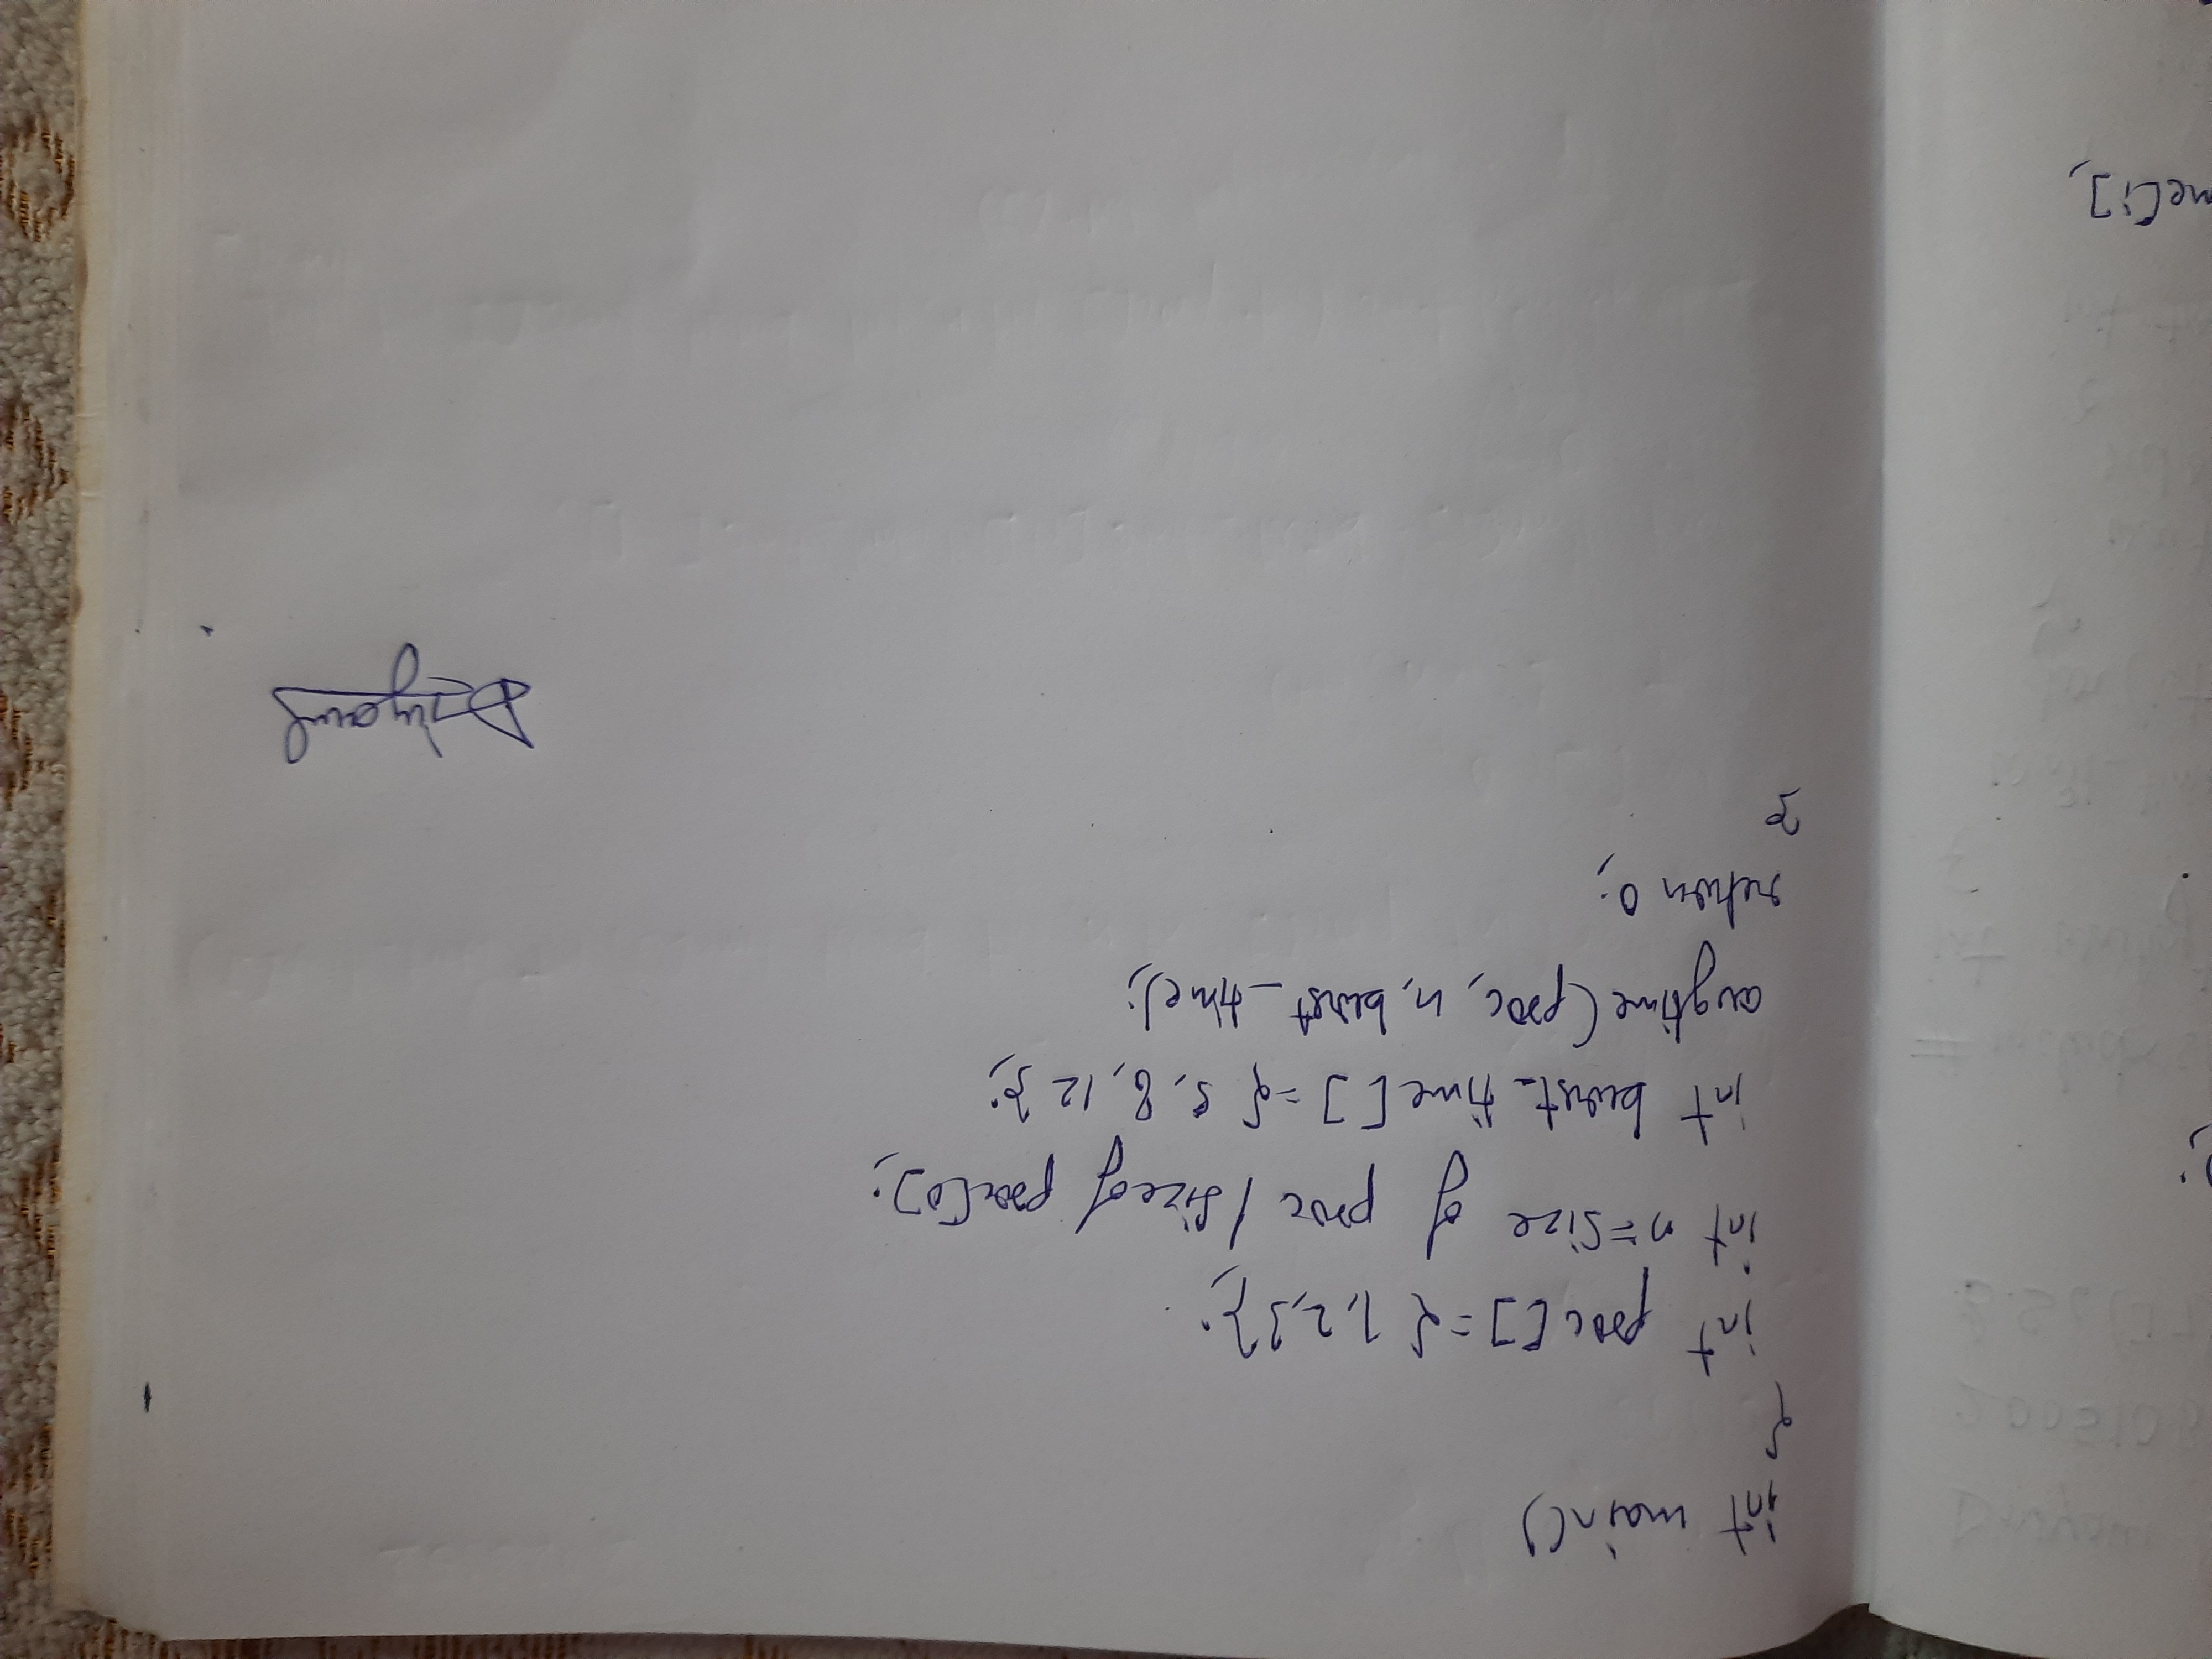 int main()
{
int proc[] = { 1, 2, 3 };
int n = size of proc / sizeof proc[0];
int burst_time[] = { 5, 8, 12 };
avgtime(proc, n, burst_time);
return 0;
}
me[i],